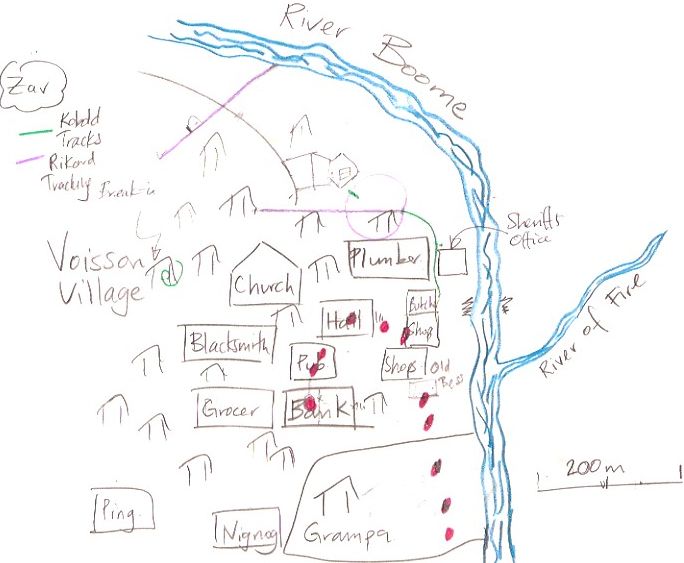 River Boome
Zav
Kobold
Tracks
Rikord
Tracking
Break-in
Sheriff
Office
Voisson
Village
Plumber
Church
River of Fire
Hall
Butch
Shop
Blacksmith
Pub
Shops
Old
Bess
Grocer
Bank
200m
Ping
Nignog
Grampa